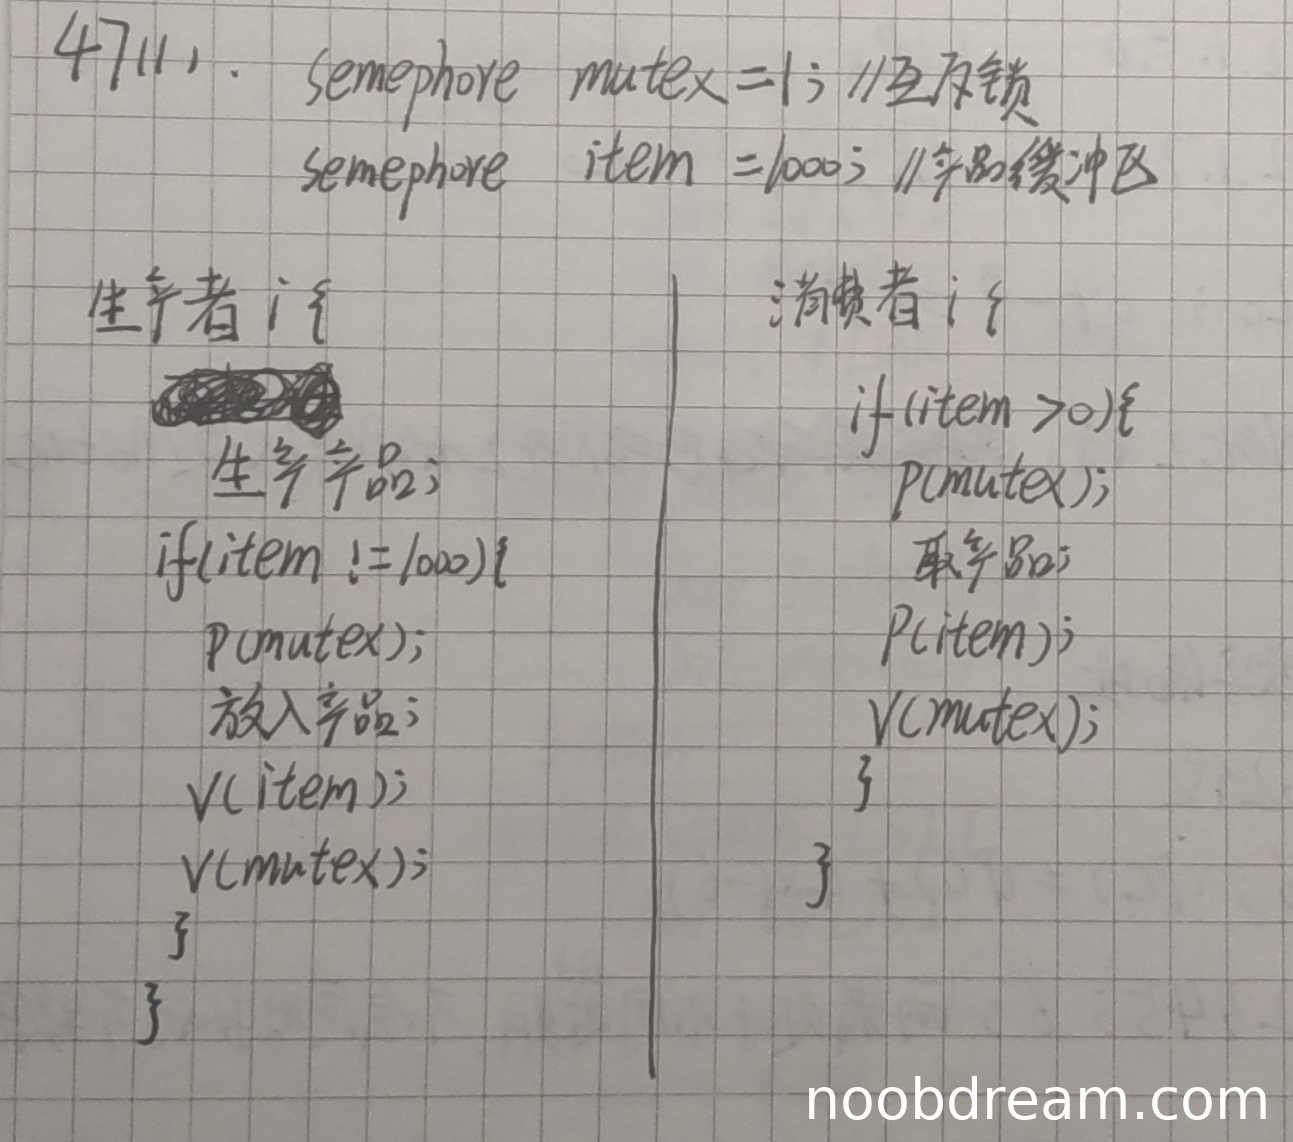 47(1).
semephore mutex =1; //互斥锁
semephore item =1000; //产品缓冲区
生产者 i {
生产产品;
if(item !=1000){
P(mutex);
放入产品;
V(item);
V(mutex);
}
}
消费者 i {
if(item >0){
P(mutex);
取产品;
P(item);
V(mutex);
}
}
noobdream.com